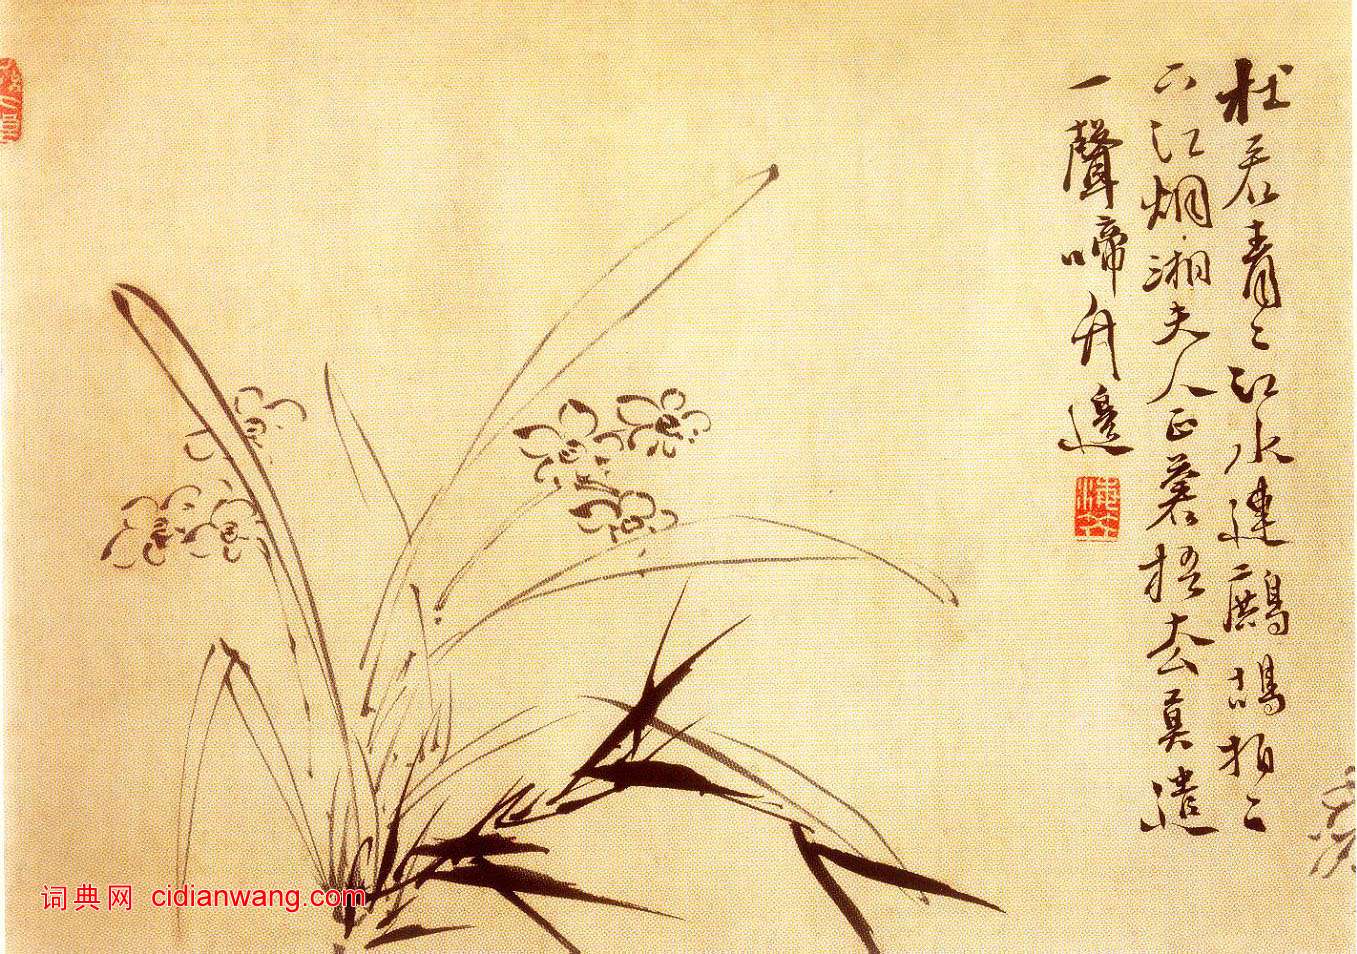 杜若青〻江水連鷓鴣拍〻
下江烟湘夫人正蒼梧去莫遣
一聲啼竹邊
词典网 cidianwang.com